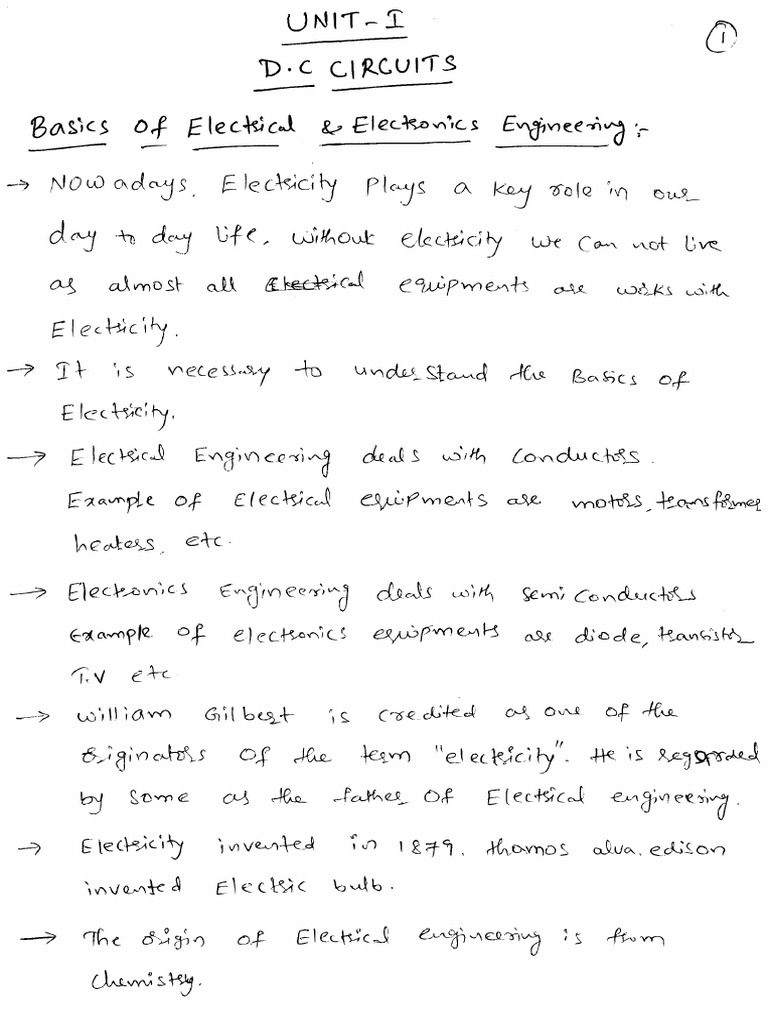 UNIT-I
①
D.C CIRCUITS
Basics Of Electrical & Electronics Engineering:-
→ NOW adays, Electricity Plays a key role in our
day to day life, without electricity we can not live
as almost all Electrical equipments are works with
Electricity.
→ It is necessary to understand the Basics of
Electricity.
→ Electrical Engineering deals with conductors.
Example of Electrical equipments are motors, transformer
heaters, etc.
→ Electronics Engineering deals with semi conductors
Example of electronics equipments are diode, transistor
T.V etc
→ William Gilbert is credited as one of the
originators of the term "electricity". He is regarded
by some as the father of Electrical engineering.
→ Electricity invented in 1879. thamos alva.edison
invented Electric bulb.
→ The origin of Electrical engineering is from
chemistry.